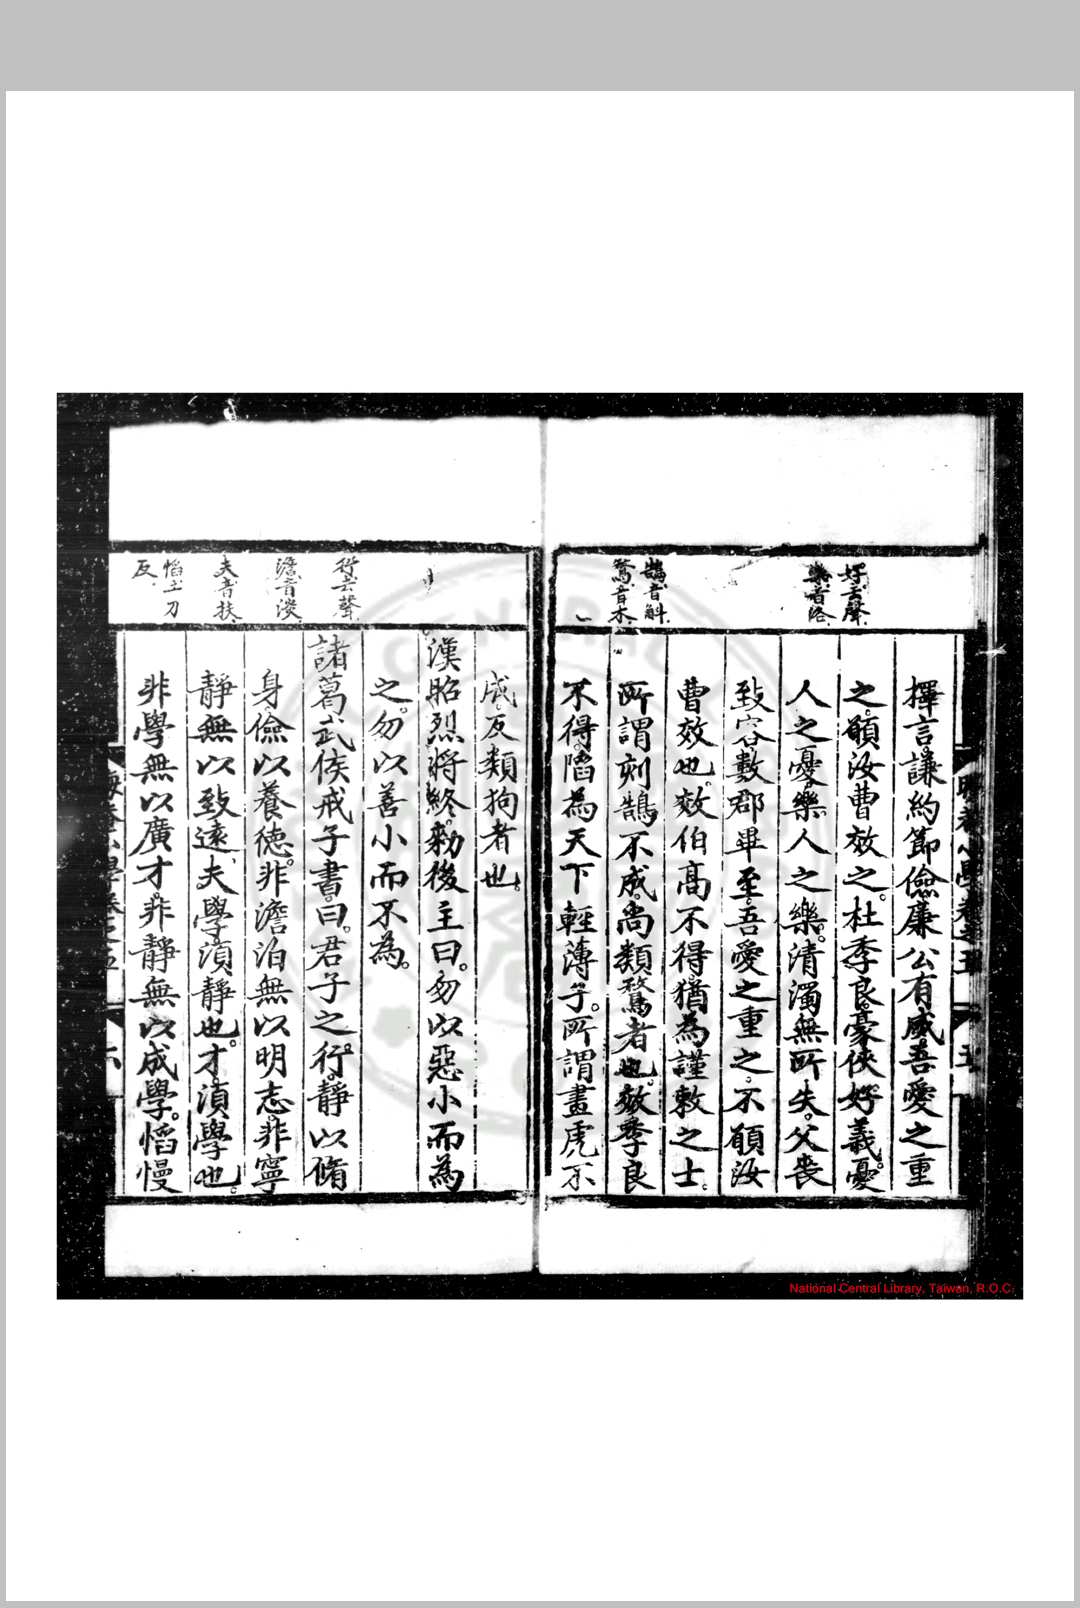 好去聲
樂音洛
鵠音斛
鶩音木
擇言謙約節儉廉公有威吾愛之重
之願汝曹效之杜季良豪俠好義憂
人之憂樂人之樂清濁無所失父喪
致客數郡畢至吾愛之重之不願汝
曹效也效伯高不得猶為謹敕之士
所謂刻鵠不成尚類鶩者也效季良
不得陷為天下輕薄子所謂畫虎不
行去聲
澹音淡
夫音扶
慆土刀
反
成反類狗者也
漢昭烈將終勑後主曰勿以惡小而為
之勿以善小而不為
諸葛武侯戒子書曰君子之行靜以脩
身儉以養德非澹泊無以明志非寧
靜無以致遠夫學湏靜也才湏學也
非學無以廣才非靜無以成學慆慢
National Central Library, Taiwan, R.O.C.